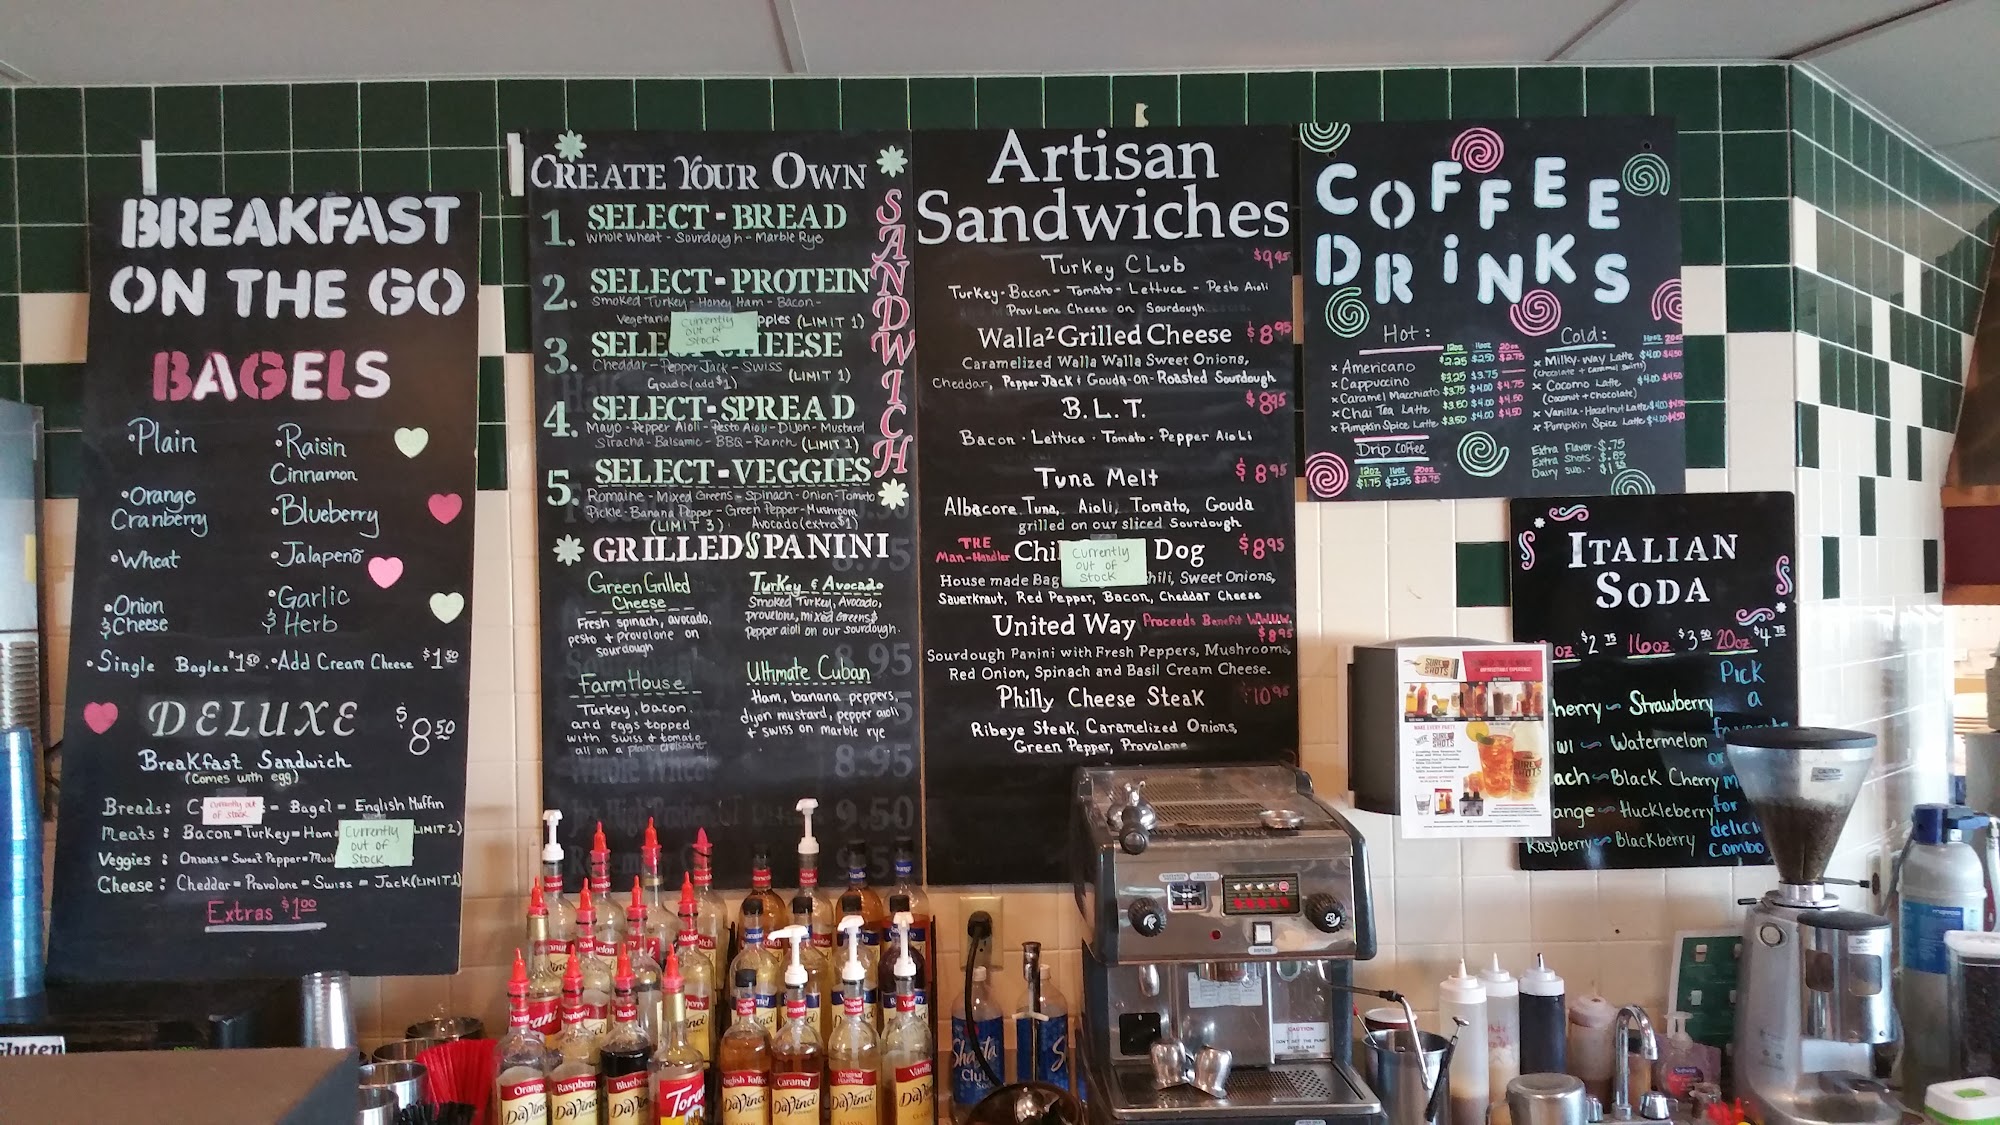 BREAKFAST
ON THE GO
BAGELS
•Plain
•Raisin
Cinnamon
•Orange
Cranberry
•Blueberry
•Wheat
•Jalapeño
•Onion
& Cheese
•Garlic
& Herb
•Single Bagles $1.50
•Add Cream Cheese $1.50
DELUXE $8.50
Breakfast Sandwich
(Comes with egg)
Breads: C = Bagel = English Muffin
Currently out
of stock
Meats: Bacon=Turkey=Ham= LIMIT 2)
Currently
out of
stock
Veggies: Onions=Sweet Pepper=Mush
Cheese: Cheddar=Provolone=Swiss=Jack(LIMIT 1)
Extras $1.00
CREATE YOUR OWN
SANDWICH
1. SELECT-BREAD
Whole Wheat - Sourdough - Marble Rye
2. SELECT-PROTEIN
Smoked Turkey - Honey Ham - Bacon -
Vegetaria pples (LIMIT 1)
Currently
out of
stock
3. SELE CHEESE
Cheddar - Pepper Jack - Swiss
Gouda (add $1) (LIMIT 1)
4. SELECT-SPREAD
Mayo - Pepper Aioli - Pesto Aioli - Dijon - Mustard
Siracha - Balsamic - BBQ - Ranch (LIMIT 1)
5. SELECT-VEGGIES
Romaine - Mixed Greens - Spinach - Onion - Tomato
Pickle - Banana Pepper - Green Pepper - Mushroom
(LIMIT 3) Avocado (extra $1)
GRILLED PANINI
Green Grilled
Cheese
Fresh spinach, avocado,
pesto + provolone on
sourdough
Turkey & Avocado
Smoked Turkey, Avocado,
provelone, mixed Greens &
pepper aioli on our sourdough.
FarmHouse
Turkey, bacon,
and eggs topped
with swiss + tomato
all on a plain croissant
Ultimate Cuban
Ham, banana peppers,
dijon mustard, pepper aioli
+ swiss on marble rye
Artisan
Sandwiches
Turkey CLub $9.95
Turkey - Bacon - Tomato - Lettuce - Pesto Aioli
ProvLone Cheese on Sourdough
Walla² Grilled Cheese $8.95
Caramelized Walla Walla Sweet Onions,
Cheddar, PepperJack & Gouda-on-Roasted Sourdough
B.L.T. $8.95
Bacon · Lettuce · Tomato · Pepper Aioli
Tuna Melt $8.95
Albacore Tuna, Aioli, Tomato, Gouda
grilled on our sliced Sourdough
THE
Man-Handler Chi Dog $8.95
Currently
out of
stock
House made Bag hili, Sweet Onions,
Sauerkraut, Red Pepper, Bacon, Cheddar Cheese
United Way Proceeds Benefit WWUW.
$8.95
Sourdough Panini with Fresh Peppers, Mushrooms,
Red Onion, Spinach and Basil Cream Cheese.
Philly Cheese Steak $10.95
Ribeye Steak, Caramelized Onions,
Green Pepper, Provolone
COFFEE
DRiNKS
Hot:
12oz 16oz 20oz
× Americano $2.25 $2.50 $2.75
× Cappuccino $3.25 $3.75
× Caramel Macchiato $3.75 $4.00 $4.75
× Chai Tea Latte $3.50 $4.00 $4.50
× Pumpkin Spice Latte $3.50 $4.00 $4.50
Drip Coffee
12oz 16oz 20oz
$1.75 $2.25 $2.75
Cold:
16oz 20oz
× Milky-way Latte $4.00 $4.50
(chocolate + caramel swirls)
× Cocomo Latte $4.00 $4.50
(Coconut + Chocolate)
× Vanilla-Hazelnut Latte $4.00 $4.50
× Pumpkin Spice Latte $4.00 $4.50
Extra Flavor - $.75
Extra Shots - $.85
Dairy sub. -
ITALIAN
SODA
oz $2.75 16oz $3.50 20oz $4.75
Pick
a
favorite
or
for
delici
combo
herry ~ Strawberry
iwi ~ Watermelon
ach ~ Black Cherry
ange ~ Huckleberry
Raspberry ~ Blackberry
SURLY
SHOTS
Gluten
Orange
DaVinci
Raspberry
DaVinci
Blueberry
DaVinci
Torani
English Toffee
DaVinci
Caramel
DaVinci
Original
Hazelnut
DaVinci
Vanilla
DaVinci
Shasta
Club
CAUTION